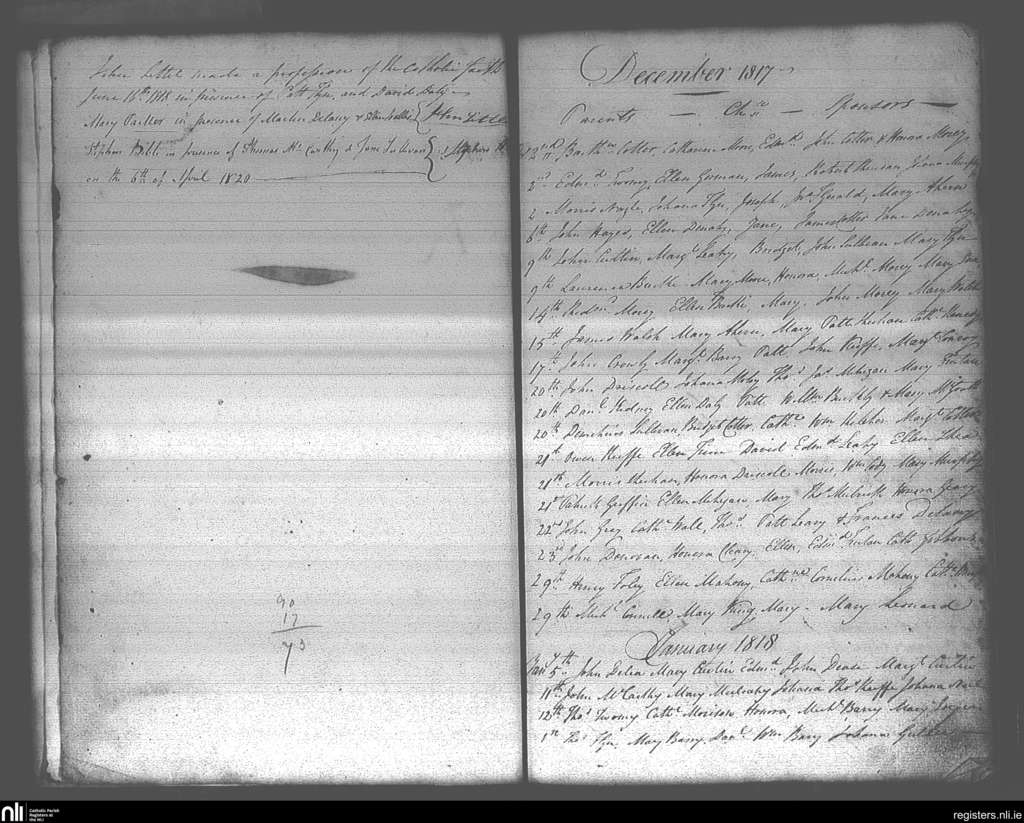 John Littel made a profession of the Catholic Faith
June 16th 1818 in presence of Patt Flyn, and David Daly
Mary Parker in presence of Martin Delany & John Little
Stephen Bible in presence of Thomas McCarthy & Jane Sullivan Stephen
on the 6th of April 1820
90
17
73
December 1817
Parents — Chn — Sponsors —
Barthw Cotter, Catharine Moore, Edmd John Cotter & Honora Morey
3rd Edmd Twomy, Ellen Gorman, James, Robert Sheehan Johana Murphy
Morris Nagle, Johana Flyn, Joseph, Jno Fgerald, Mary Ahern
6th John Hayes, Ellen Denahy, Jane, James Cotter Jane Denahy
9th John Curtin, Margt Leahy, Bridget, John Sullivan Mary Flyn
9th Laurence Burke Mary Moore, Honora, Michl Morey Mary
14th Redmd Morey Ellen Burke, Mary. John Morey Mary Walsh
15th James Walsh Mary Ahern, Mary Patt Sheehan Cathe Kennedy
17th John Crowly Margt Barry Patt. John Keeffe, Margt Conroy
20th John Driscoll Johana Thos Jas Mehigan Mary
20th Danl Ellen Daly Patt Willm Buckly & Mary McGrath
20th Demetrius Sullivan, Bridget Cotter, Cathe Wm Kelcher Margt
21st Owen Keeffe Ellen Finn David Edmd Leahy Ellen Shea
21st Morris Sheehan, Honora Driscoll Morris, Wm Cody Mary Murphy
21st Patrick Griffin Ellen Mehigan, Mary Thos Honora Geary
22nd John Gray Cathe Wall, Thos Patt Leary & Frances Delany
23rd John Donovan, Honora Cleary, Ellen, Edmd Cath
29th Henry Foley Ellen Mahony, Cathne Cornelius Mahony Cathe
29th Michl Mary King Mary - Mary Leonard
January 1818
Jany 5th John Delea Mary Curtin Edmd John Deale Margt Curtin
11th John McCarthy Mary Mulcahy Johana Thos Keeffe Johana
12th Thos Twomy Cathe Morison Honora, Michl Barry Mary
Thos Flyn, Mary Barry, Danl Wm Barry Johana
nli
Catholic Parish
Registers at
the NLI
registers.nli.ie